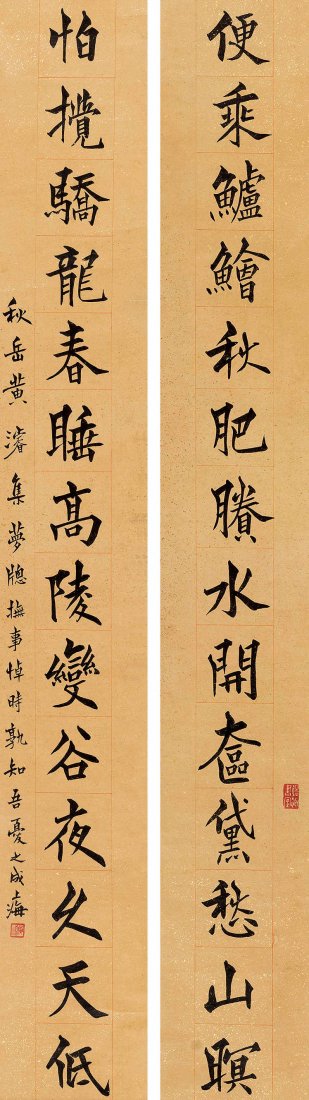 便乘鱸鱠秋肥賸水開奩黛愁山暝
怕攪驕龍春睡高陵變谷夜久天低
秋岳黃濬集夢牕撫事悼時孰知吾憂之成海